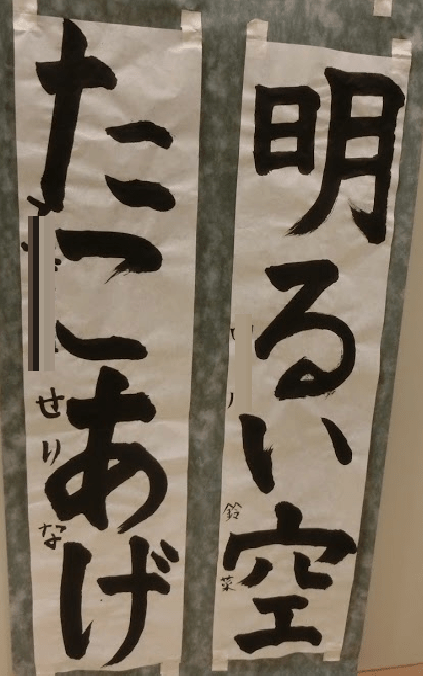 明るい空
鈴菜
たこあげ
せりな